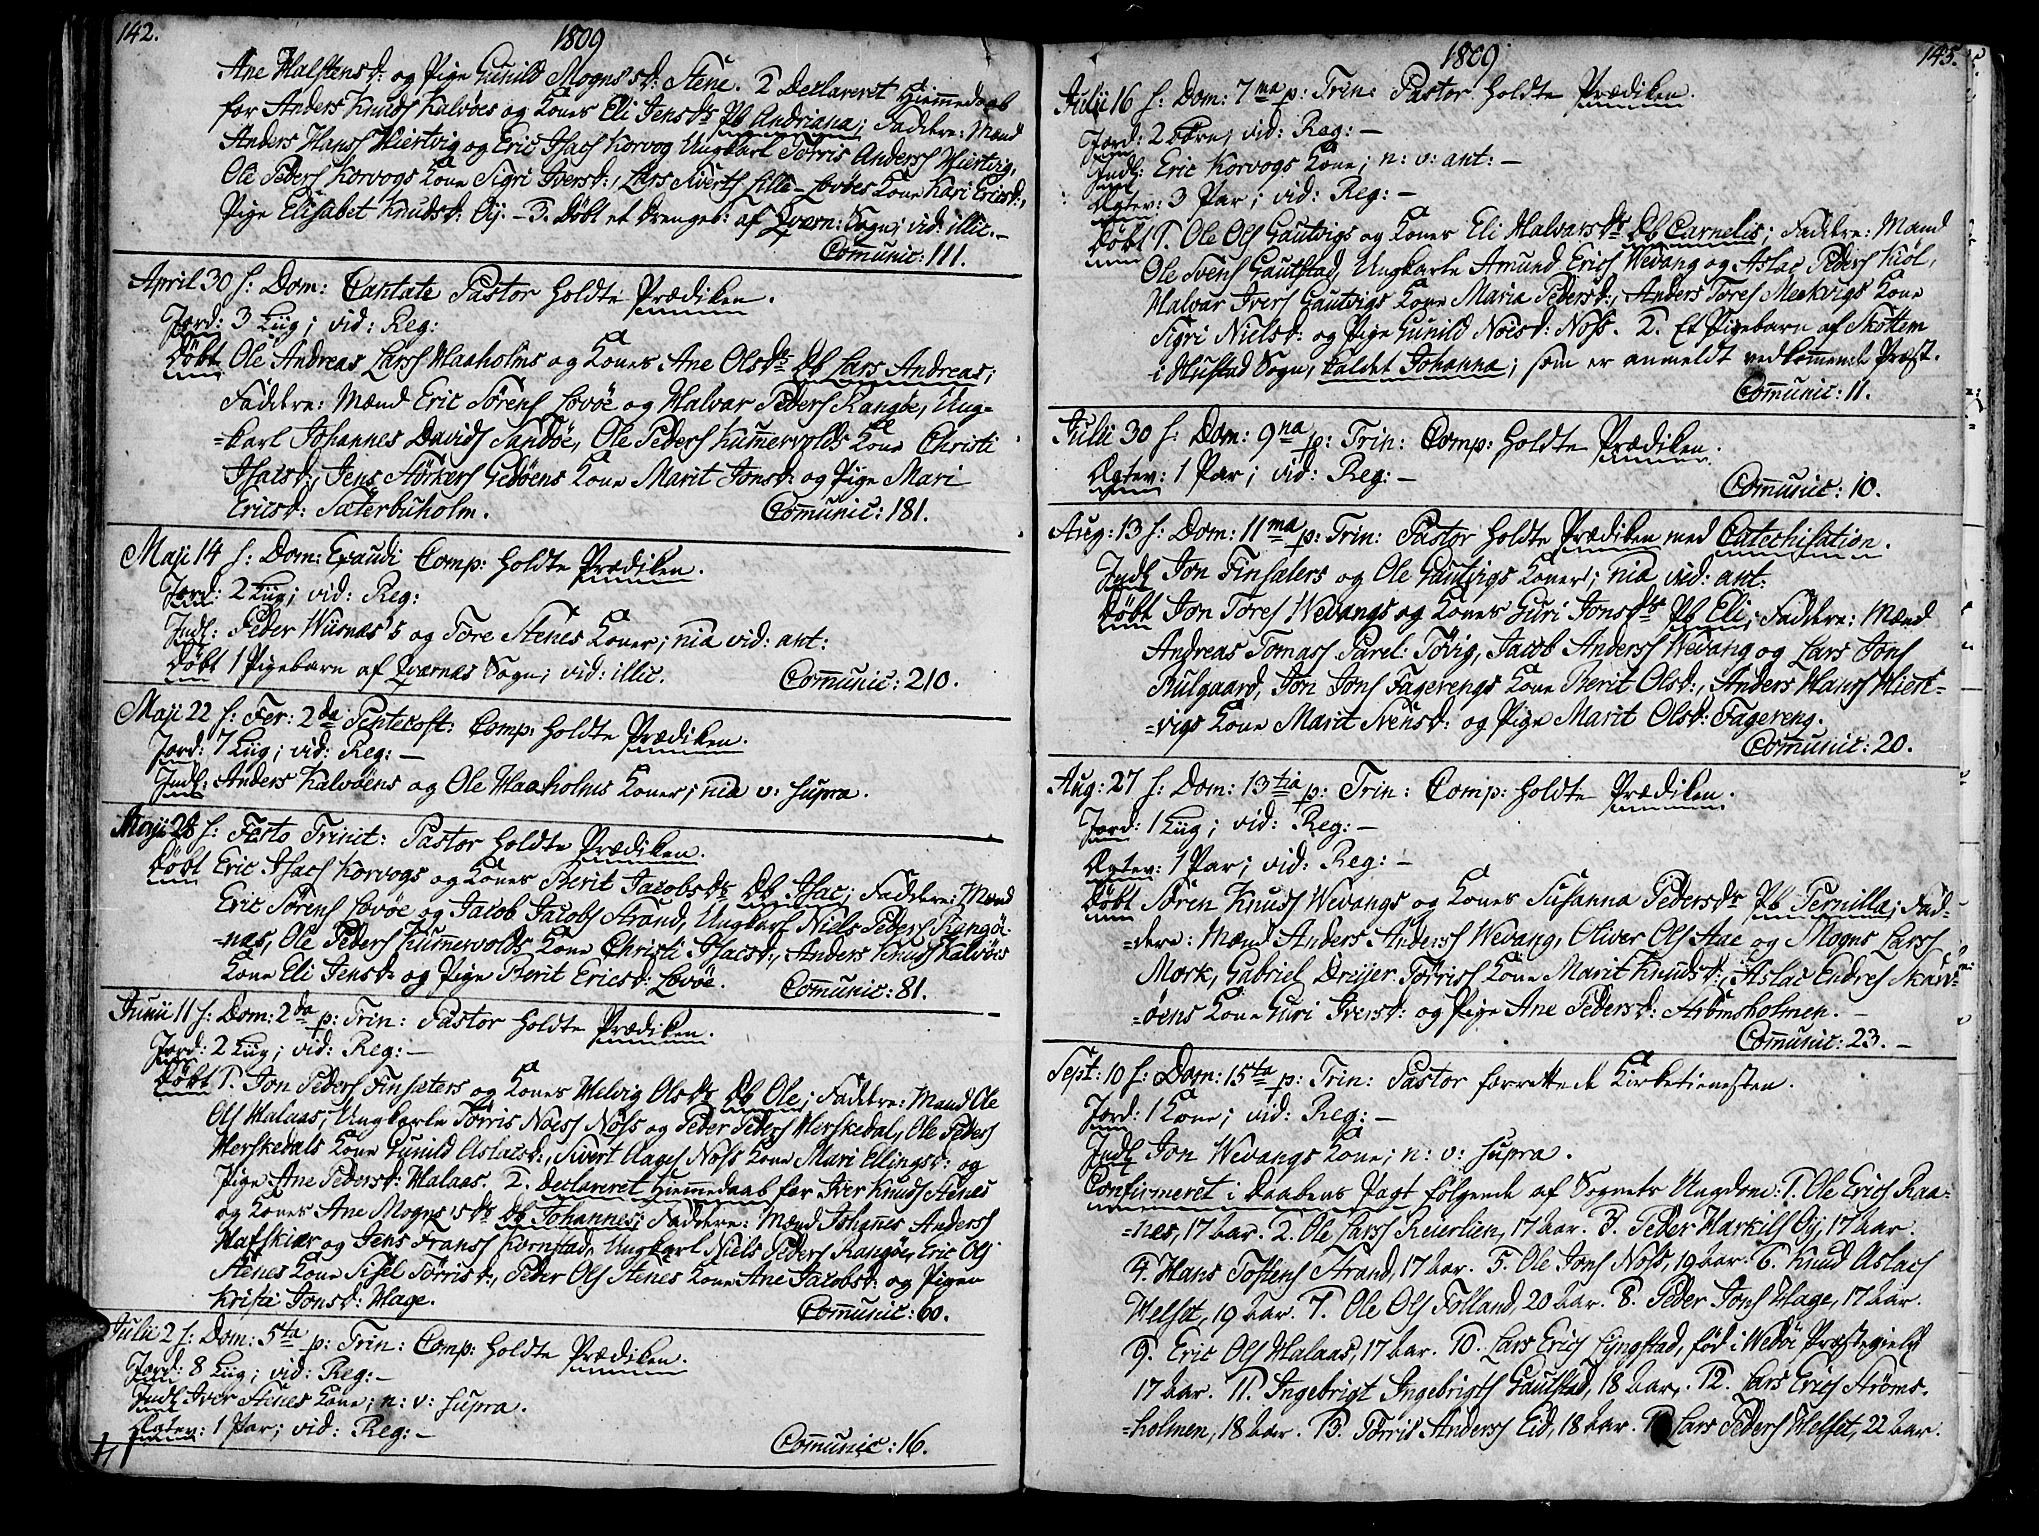 142.
1809
Ane Halstensd: og Pige Gunild Mognsd: Stene. 2 Declareret Hiemmedaab
for Anders Knuds Kalvöes og Kones Eli Jensdr Pb Andriana; Faddere: Mænd
Anders Hans Hiertvig og Eric Isacs Korvog Ungkarl Törris Anders Hiertvig,
Ole Peders Korvogs Kone Sigri Iversd:, Lars Siverts Lille-Lovöes Kone Kari Ericsd:,
Pige Elisabet Knudsd: Öy. – 3. Döbt et Drengeb: af Qværn: Sogn; vid: illic. –
Comunic: 111.
April 30 f: Dom: Cantate Pastor holdte Prædiken.
Jord: 3 Liig; vid: Reg:
Döbt Ole Andreas Larss Haaholms og Kones Ane Olsdr Db Lars Andreas;
Faddere: Mænd Eric Sörens Lovöe og Halvar Peders Rangöe, Ung-
=karl Johannes Davids Sandöe, Ole Peders Kummervolds Kone Christi
Isacsd:, Jens Störkers Gedöens Kone Marit Jonsd: og Pige Mari
Ericsd: Sæterbuholm.
Comunic: 181.
Maji 14 f: Dom: Exaudi Comp: holdte Prædiken.
Jord: 2 Liig; vid: Reg:
Indl: Peder Wiirnæs's og Tore Stenes Koner; nia vid: ant:
Döbt 1 Pigebarn af Qværnæs Sogn; vid: illic.
Comunic: 210.
Maji 22 f: Fer: 2da Pentecost: Comp: holdte Prædiken.
Jord: 7 Liig; vid: Reg: –
Indl: Anders Kalvöens og Ole Haaholms Koner; nia v: supra.
Maji 28 f: Festo Trinit: Pastor holdte Prædiken.
Döbt Eric Isacs Korvogs og Kones Berit Jacobsdr Db Isac; Faddere: Mænd
Eric Sörens Lovöe og Jacob Jacobs Strand, Ungkarl Niels Peders Rangö-
=næs, Ole Peders Kummervolds Kone Christi Isacsd:, Anders Knuds Kalvöes
Kone Eli Jensd: og Pige Berit Ericsd: Lovöe.
Comunic: 81.
Junii 11 f: Dom: 2da p: Trin: Pastor holdte Prædiken.
Jord: 2 Liig; vid: Reg: –
Döbt 1. Jon Peders Finsæters og Kones Helvig Olsdr Db Ole; Faddere: Mænd Ole
Ols Malaas, Ungkarle Törris Noess Noss og Peder Peders Herskedal, Ole Peders
Herskedals Kone Gunild Aslacsd:, Sivert Aages Noss Kone Mari Ellingsd: og
Pige Ane Pedersd: Malaas. 2. Declareret Hiemmedaab for Iver Knuds Stenes
og Kones Ane Mognsdr Db Johannes; Faddere: Mænd Johannes Anders
Hafskiær og Jens Frans Kornstad, Ungkarl Niels Peders Rangöe, Eric Ols
Stenes Kone Sisel Törrisd:, Peder Ols Stenes Kone Ane Jacobsd: og Pigen
Kristi Jonsd: Hage.
Comunic: 60.
Julii 2 f: Dom: 5ta p: Trin: Comp: holdte Prædiken.
Jord: 8 Liig; vid: Reg: –
Indl Iver Stenes Kone; n: v: supra.
Ægtev: 1 Par; vid: Reg: –
Comunic: 16.
1809
143.
Julii 16 f: Dom: 7ma p: Trin: Pastor holdte Prædiken.
Jord: 2 Börn; vid: Reg: –
Indl: Eric Korvogs Kone; n: v: ant: –
Ægtev: 3 Par; vid: Reg: –
Döbt 1. Ole Ols Gautvigs og Kones Eli Halvarsdr Db Carnelis; Faddere: Mænd
Ole Svens Gautstad, Ungkarle Amund Erics Wevang og Aslac Peders Kiöl,
Halvar Ivers Gautvigs Kone Maria Pedersd:, Anders Tores Mekvigs Kone
Sigri Nielsd: og Pige Gunild Noesd: Noss. 2. Et Pigebarn af Skottem
i Hustad Sogn, kaldet Johanna; som er anmeldt vedkommende Præst.
Comunic: 11.
Julii 30 f: Dom: 9na p: Trin: Comp: holdte Prædiken.
Ægtev: 1 Par; vid: Reg: –
Comunic: 10.
Aug: 13 f: Dom: 11ma p: Trin: Pastor holdte Prædiken med Catechisation.
Indl Jon Finsæters og Ole Gautvigs Koner; nia vid: ant:
Döbt Jon Tores Wevangs og Kones Guri Jonsdr Pb Eli; Faddere: Mænd
Andreas Tomass Parel: Tövig, Jacob Anders Wevang og Lars Jons
Bulgaard, Jon Jons Fagerengs Kone Berit Olsd:, Anders Hans Hiert-
=vigs Kone Marit Svensd: og Pige Marit Olsd: Fagereng.
Comunic: 20.
Aug: 27 f: Dom: 13tia p: Trin: Comp: holdte Prædiken.
Jord: 1 Liig; vid: Reg: –
Ægtev: 1 Par; vid: Reg: –
Döbt Sören Knuds Wevangs og Kones Susanna Pedersdr Pb Pernilla; Fad-
=dere: Mænd Anders Anders Wevang, Oliver Ols Aae og Mogns Larss
Mork, Gabriel Dreijer Törriss Kone Marit Knudsd:, Aslac Endres Skarv-
=öens Kone Guri Iversd: og Pige Ane Pedersd: Strömsholmen. –
Comunic: 23. –
Sept: 10 f: Dom: 15ta p: Trin: Pastor forrettede Kirketienesten.
Jord: 1 Kone; vid: Reg: –
Indl Jon Wevangs Kone; n: v: supra.
Confirmeret i Daabens Pagt fölgende af Sognets Ungdom: 1. Ole Erics Raa-
=næs, 17 Aar. 2. Ole Larss Reierlien, 17 Aar. 3. Peder Harkils Öy, 17 Aar.
4. Hans Tostens Strand, 17 Aar. 5. Ole Jons Noss, 19 Aar. 6. Knud Aslacs
Helset, 19 Aar. 7. Ole Ols Folland, 20 Aar. 8. Peder Jons Hage, 17 Aar.
9. Eric Ols Malaas, 17 Aar. 10. Lars Erics Lyngstad, föd i Wedöi Præstegield
17 Aar. 11. Ingebrigt Ingebrigts Gautstad, 18 Aar. 12. Lars Erics Ströms-
=holmen, 18 Aar. 13. Törris Anders Eid, 18 Aar. Lars Peders Helset, 22 Aar.